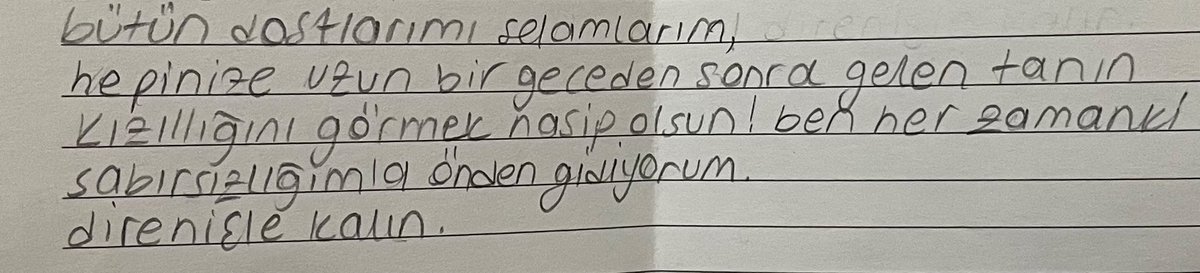 bütün dostlarımı selamlarım,
hepinize uzun bir geceden sonra gelen tanın
kızıllığını görmek nasip olsun! ben her zamanki
sabırsızlığımla önden gidiyorum.
direnişle kalın.